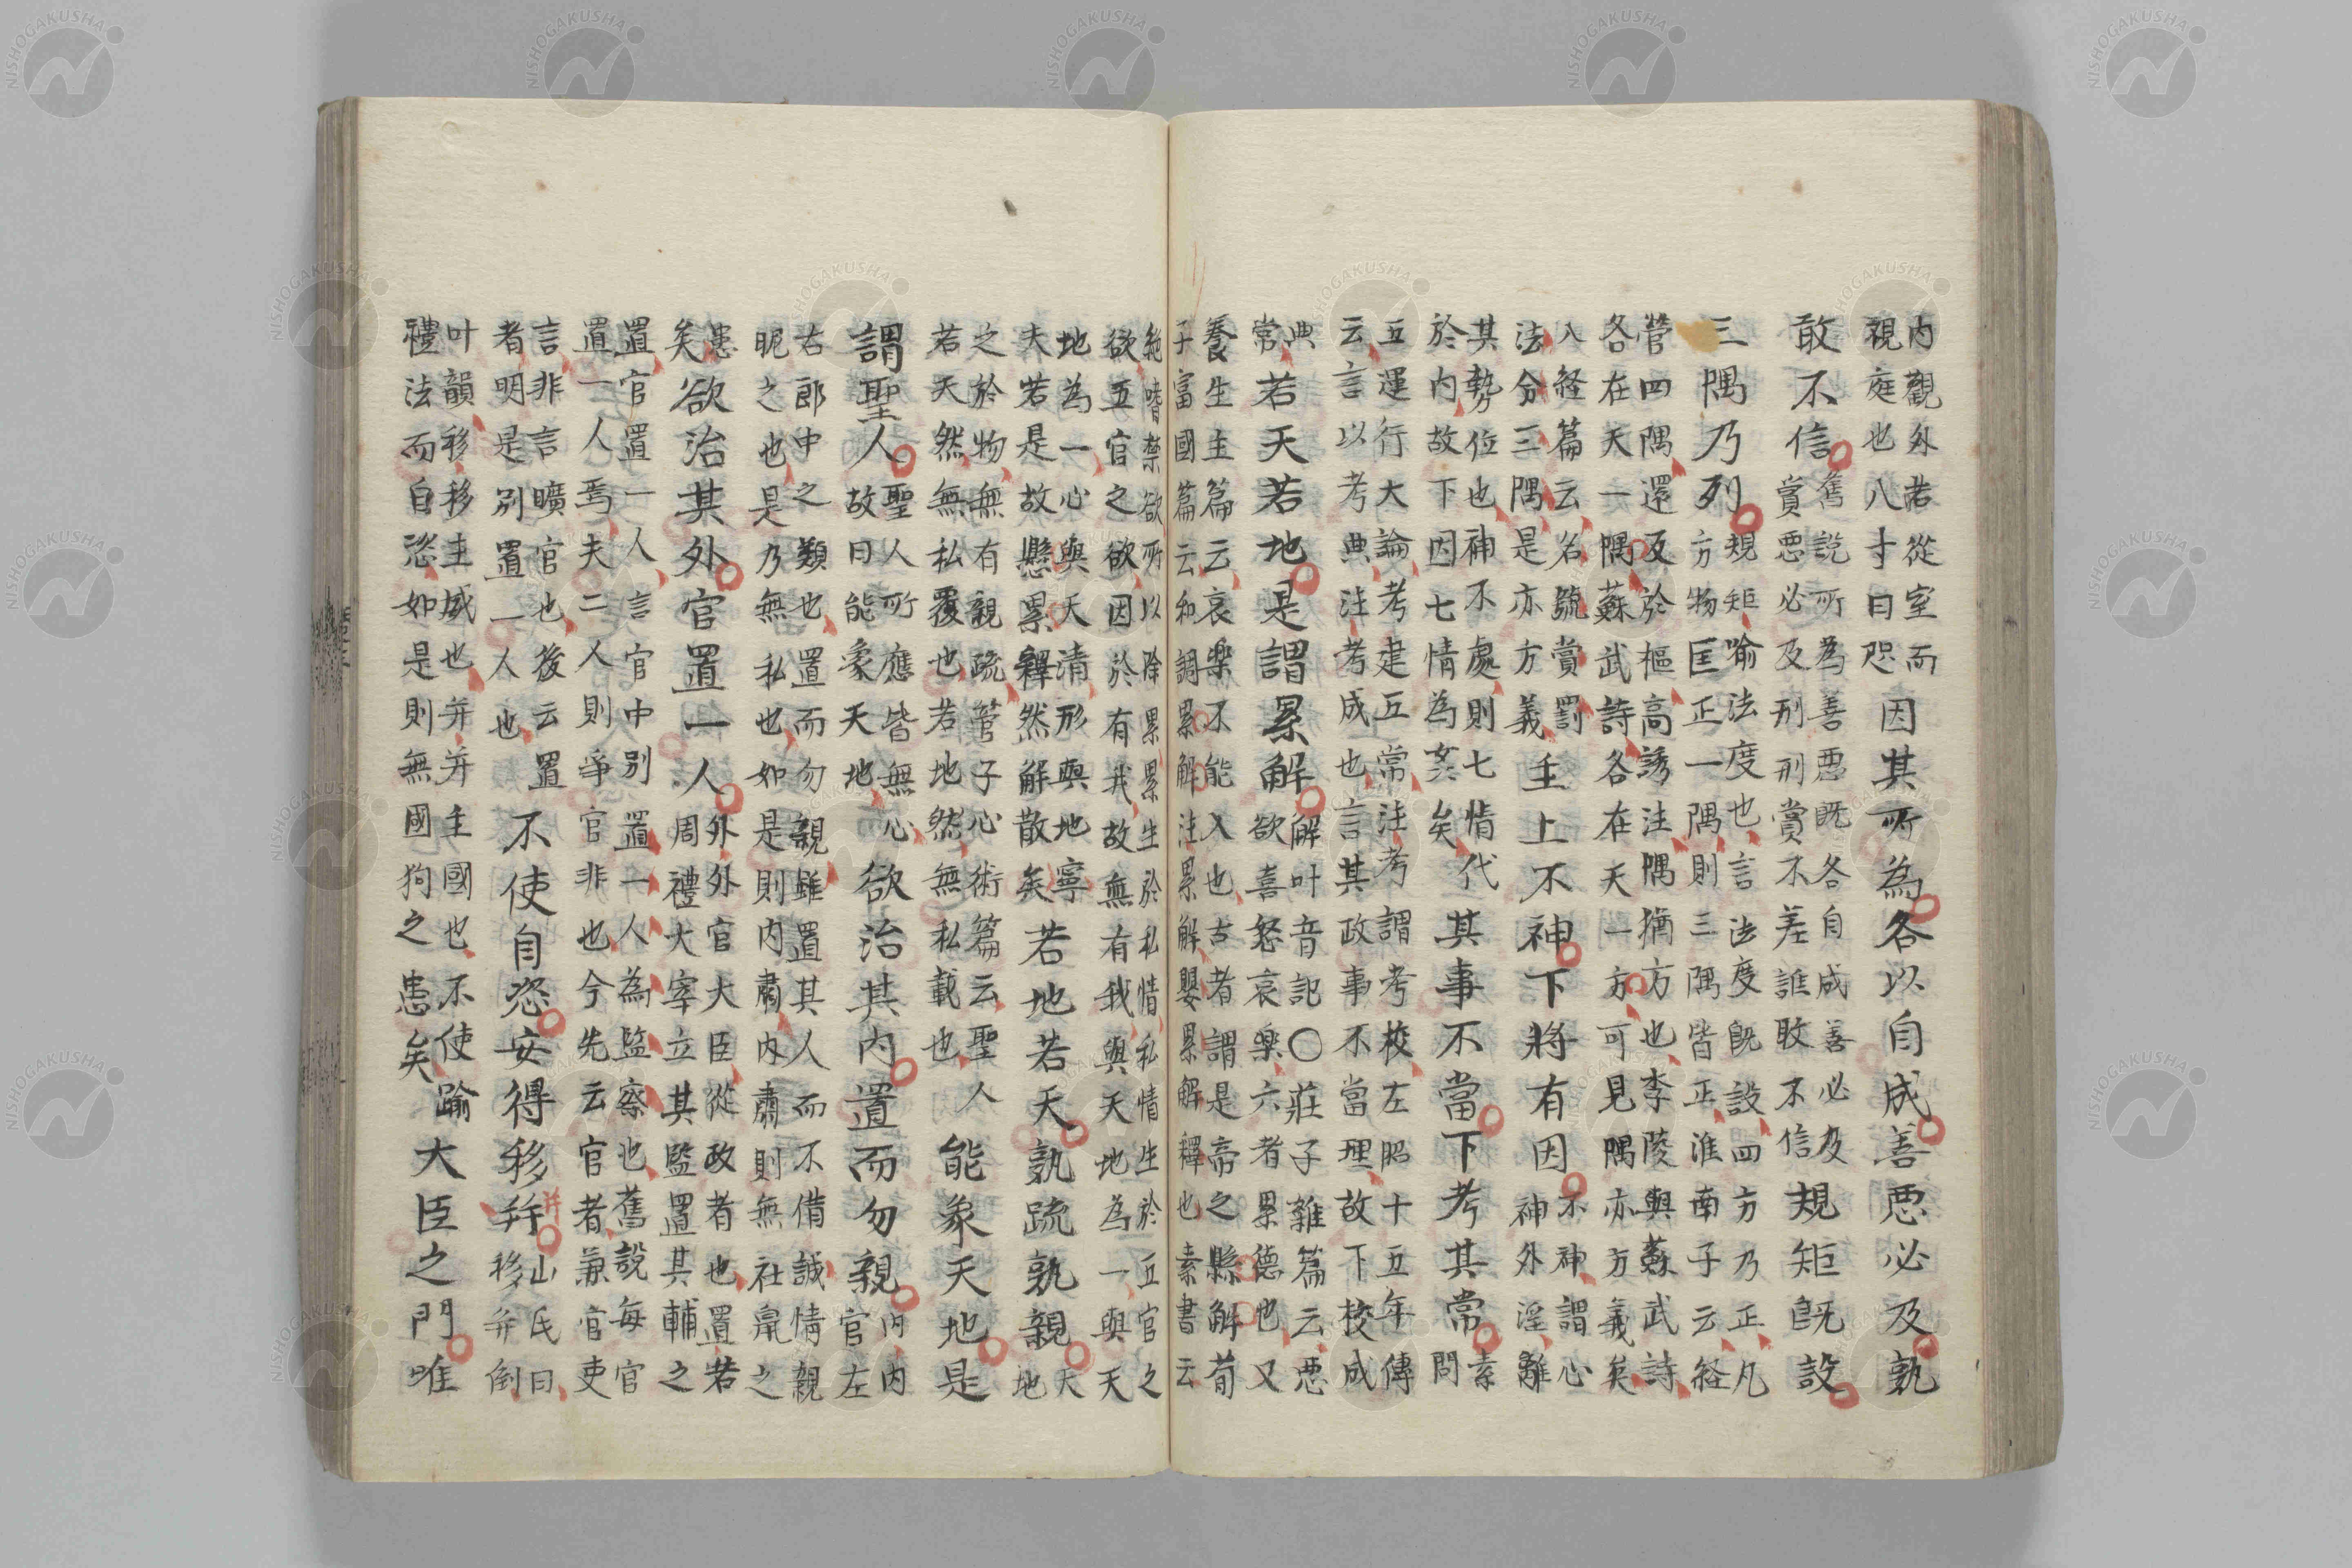 內觀外若從室而
視庭也八寸曰咫
因其所為各以自成善惡必及孰
敢不信
舊說所為善惡既各自成善必及
賞惡必及刑刑賞不差誰敢不信
規矩既設
三隅乃列
規矩喻法度也言法度既設四方乃正凡
方物匡正一隅則三隅皆正淮南子云経
管四隅還反於樞高誘注隅猶方也李陵與蘇武詩
各在天一隅蘇武詩各在天一方可見隅亦方義矣
八経篇云名號賞罰
法分三隅是亦方義
主上不神下將有因
不神謂心
神外淫離
其勢位也神不處則七情代
於内故下因七情為姦矣
其事不當下考其常
素
問
五運行大論考建五常注考謂考校左昭十五年傳
云言以考典注考成也言其政事不當理故下校成
典
常
若天若地是謂累解
解叶音記〇莊子雜篇云惡
欲喜怒哀樂六者累德也又
養生主篇云哀樂不能入也古者謂是帝之縣解荀
子富國篇云和調累解注累解嬰累解釋也素書云
絶嗜禁欲所以除累累生於私情私情生於五官之
欲五官之欲欲因於有我故無有我與天地為一與天
地為一心與天清形與地寧
夫若是故懸累釋然解散矣
若地若天孰疏孰親
天
地
之於物無有親疏管子心術篇云聖人
若天然無私覆也若地然無私載也
能象天地是
謂聖人
聖人所應皆無心
故曰能象天地
欲治其内置而勿親
内内
官左
右郎中之類也置而勿親雖置其人而不備誠情親
昵之也是乃無私也如是則内肅内肅則無社鼠之
患
矣
欲治其外官置一人
外外官大臣從政者也置若
周禮大宰立其監置其輔之
置官置一人言官中別置一人為監察也舊說每官
置一人焉夫二人則爭官非也今先云官者兼官吏
言非言曠官也後云置
者明是別置一人也
不使自恣安得移幷
并
山氏曰
移并倒
叶韻移移主威也并并主國也不使踰
禮法而自恣如是則無國狗之患矣
大臣之門唯